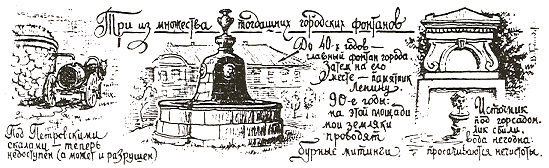 Три из множества тогдашних городских фонтанов
Под Петровскими
скалами — теперь
недоступен (а может и разрушен)
До 40-х годов —
главный фонтан города
затем на его
месте — памятник
Ленину.
90-е годы:
на этой площади
мои земляки
проводят
бурные митинги
Источник
под горсадом.
лик сбили,
вода негодна:
просачиваются нечистоты.